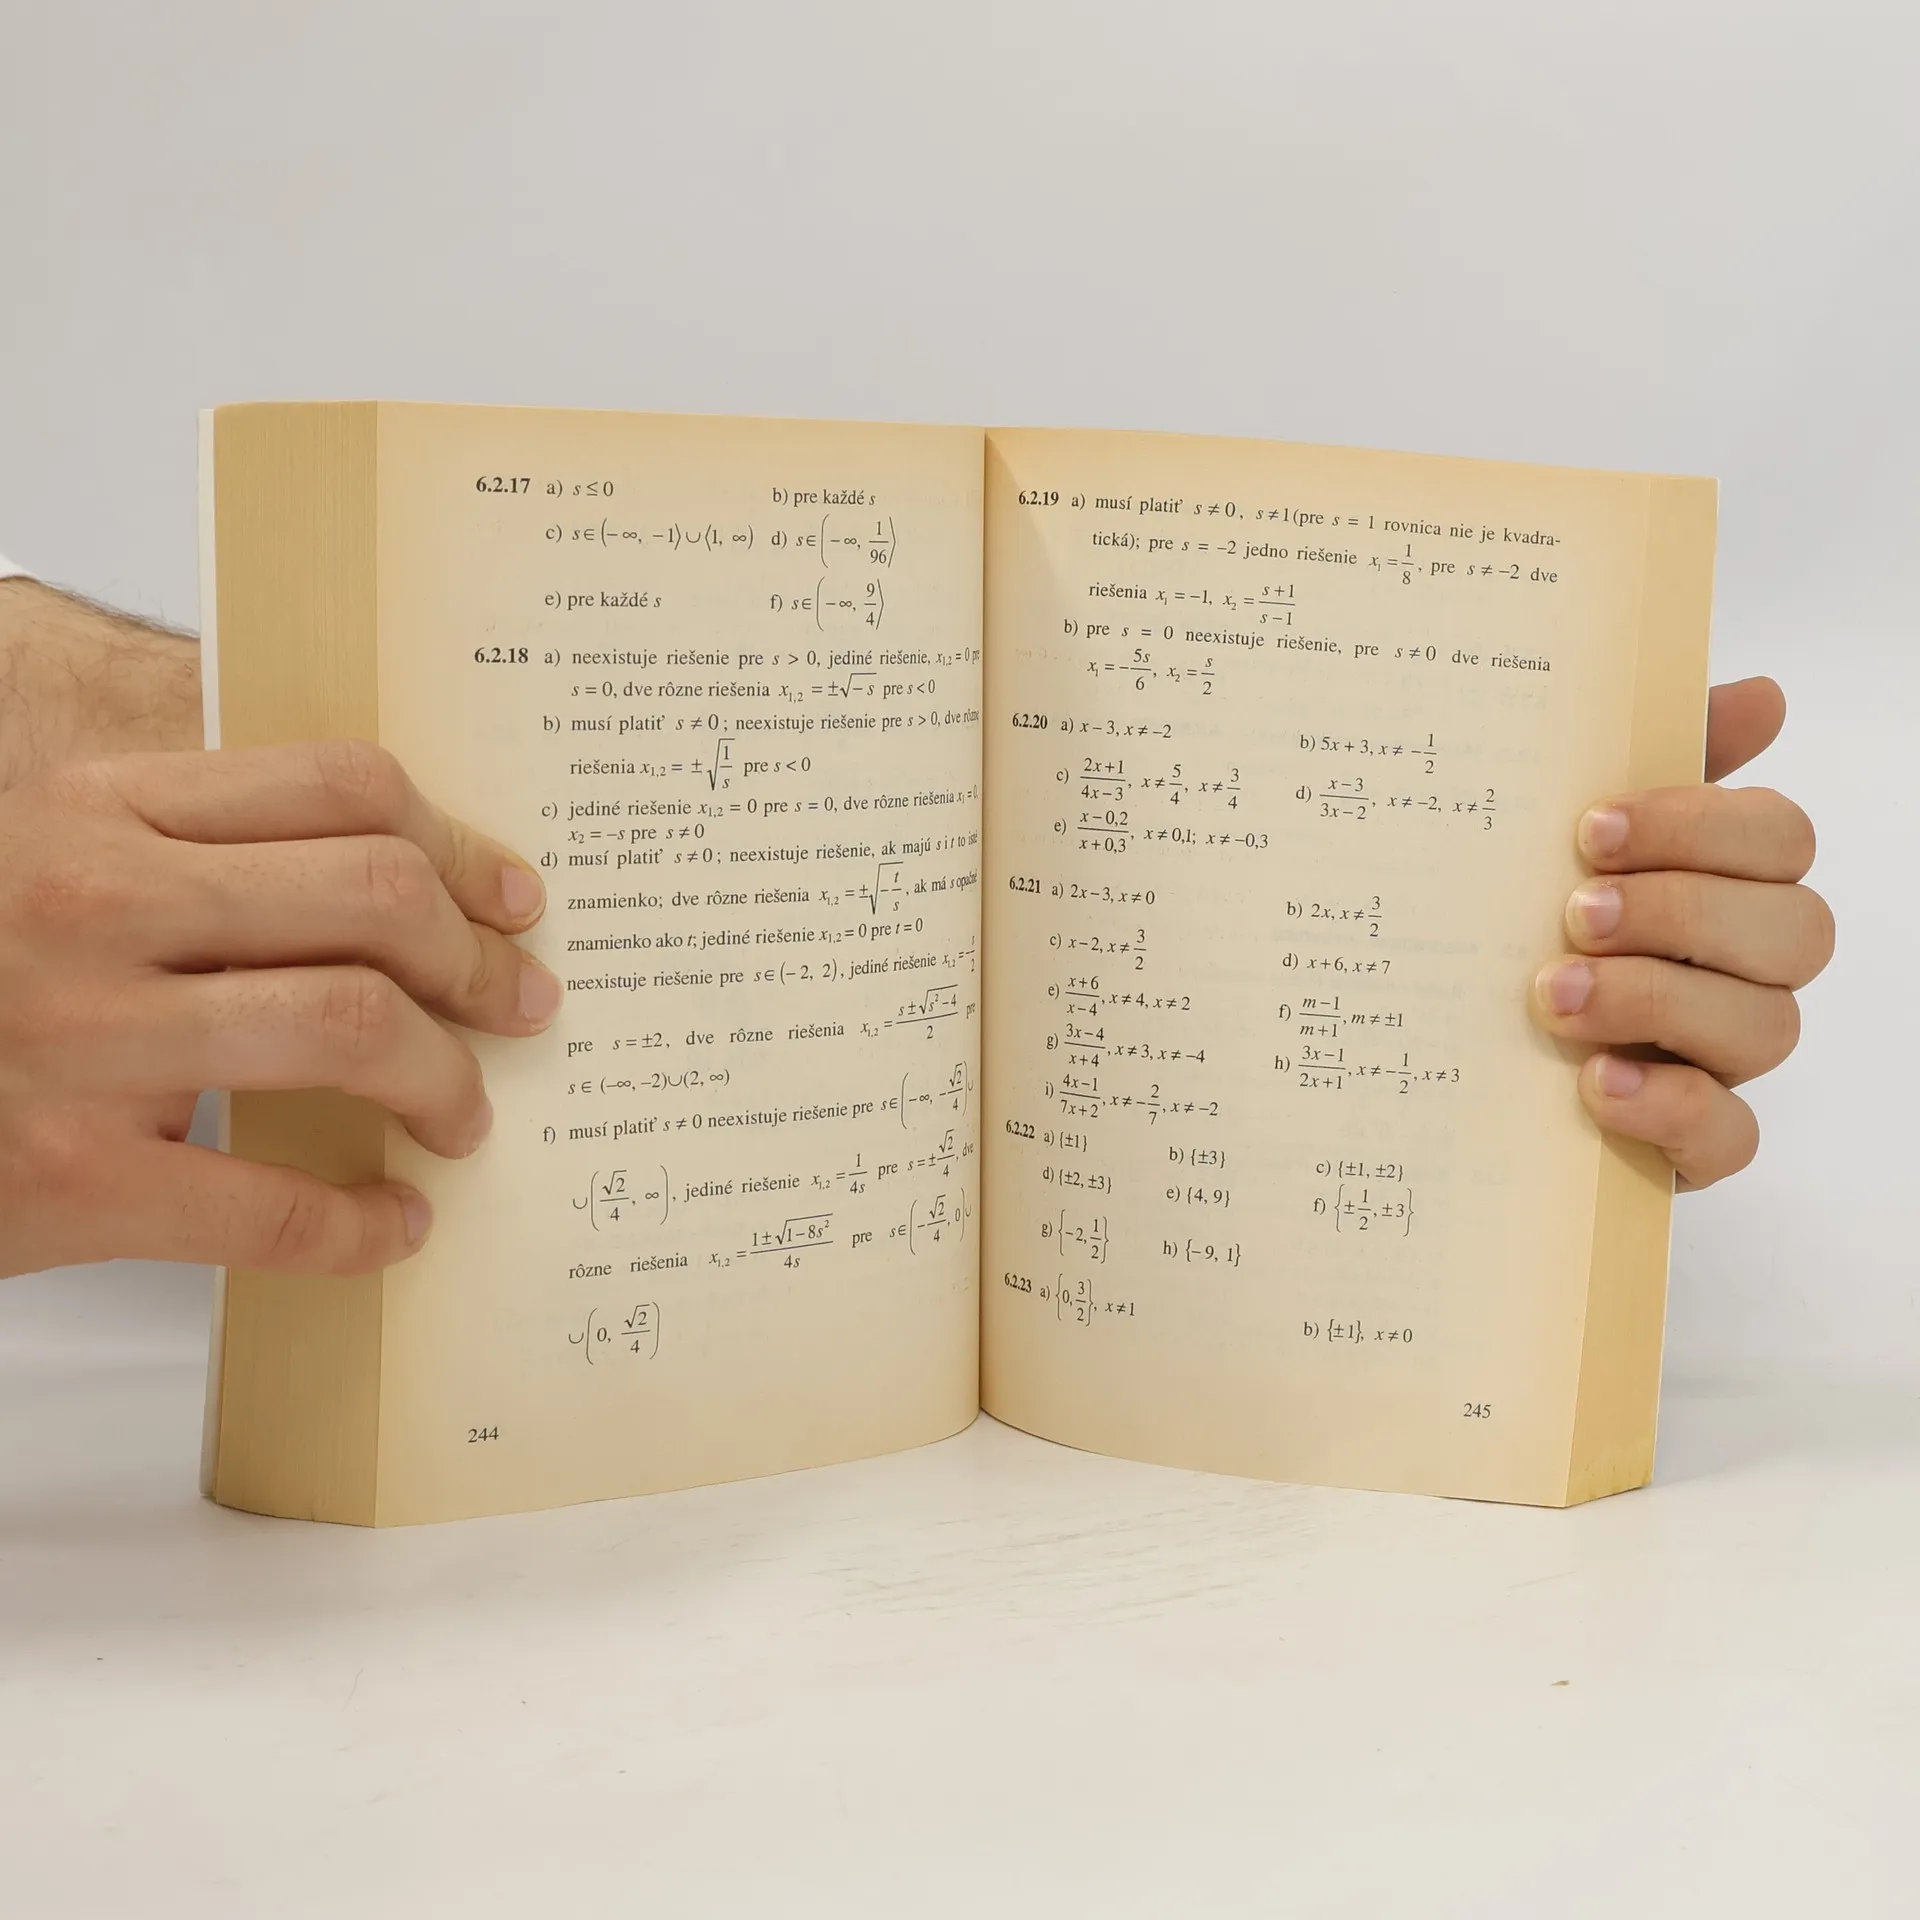 6.2.17 a) s ≤ 0 b) pre každé s
c) s∈(−∞, −1⟩∪⟨1, ∞) d) s∈(−∞, 1/96⟩
e) pre každé s f) s∈(−∞, 9/4⟩
6.2.18 a) neexistuje riešenie pre s > 0, jediné riešenie, x₁,₂ = 0 pre
s = 0, dve rôzne riešenia x₁,₂ = ±√(−s) pre s < 0
b) musí platiť s ≠ 0; neexistuje riešenie pre s > 0, dve rôzne
riešenia x₁,₂ = ±√(1/s) pre s < 0
c) jediné riešenie x₁,₂ = 0 pre s = 0, dve rôzne riešenia x₁ = 0,
x₂ = −s pre s ≠ 0
d) musí platiť s ≠ 0; neexistuje riešenie, ak majú s i t to isté
znamienko; dve rôzne riešenia x₁,₂ = ±√(−t/s), ak má s opačné
znamienko ako t; jediné riešenie x₁,₂ = 0 pre t = 0
neexistuje riešenie pre s∈(−2, 2), jediné riešenie x₁,₂ =
pre s = ±2, dve rôzne riešenia x₁,₂ = (s±√(s²−4))/2 pre
s∈(−∞, −2)∪(2, ∞)
f) musí platiť s ≠ 0 neexistuje riešenie pre s∈(−∞, −√2/4)∪
∪(√2/4, ∞), jediné riešenie x₁,₂ = 1/4s pre s = ±√2/4, dve
rôzne riešenia x₁,₂ = (1±√(1−8s²))/4s pre s∈(−√2/4, 0)∪
∪(0, √2/4)
244
6.2.19 a) musí platiť s ≠ 0, s ≠ 1 (pre s = 1 rovnica nie je kvadra-
tická); pre s = −2 jedno riešenie x₁ = 1/8, pre s ≠ −2 dve
riešenia x₁ = −1, x₂ = (s+1)/(s−1)
b) pre s = 0 neexistuje riešenie, pre s ≠ 0 dve riešenia
x₁ = −5s/6, x₂ = s/2
6.2.20 a) x − 3, x ≠ −2 b) 5x + 3, x ≠ −1/2
c) (2x+1)/(4x−3), x ≠ 5/4, x ≠ 3/4 d) (x−3)/(3x−2), x ≠ −2, x ≠ 2/3
e) (x−0,2)/(x+0,3), x ≠ 0,1; x ≠ −0,3
6.2.21 a) 2x − 3, x ≠ 0 b) 2x, x ≠ 3/2
c) x − 2, x ≠ 3/2 d) x + 6, x ≠ 7
e) (x+6)/(x−4), x ≠ 4, x ≠ 2 f) (m−1)/(m+1), m ≠ ±1
g) (3x−4)/(x+4), x ≠ 3, x ≠ −4 h) (3x−1)/(2x+1), x ≠ −1/2, x ≠ 3
i) (4x−1)/(7x+2), x ≠ −2/7, x ≠ −2
6.2.22 a) {±1} b) {±3} c) {±1, ±2}
d) {±2, ±3} e) {4, 9} f) {±1/2, ±3}
g) {−2, 1/2} h) {−9, 1}
6.2.23 a) {0, 3/2}, x ≠ 1 b) {±1}, x ≠ 0
245